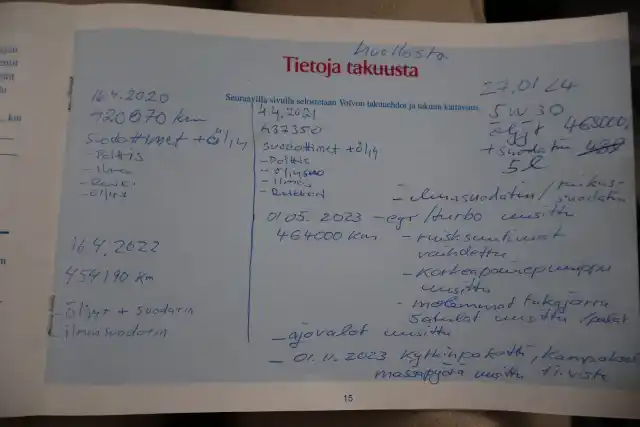 huollosta
Tietoja takuusta
Seuraavilla sivuilla selostetaan Volvon takuuehdot ja takuun kattavuus.
16.4.2020
420670 km
suodattimet + öljy
- Poltto
- Ilma
- öljys
16.4.2022
454190 km
- öljyt + suodatin
ilmansuodatin
4.4.2021
437350
suodattimet + öljy
- Poltto
- öljysuo
- ilma
- Raikkari
27.01 24
5W30
öljyt 468000
+ suodatin
5 l
- ilmansuodatin / raikassuodatin
01.05.2023 - egr/turbo uusittu
464000 km
- ruisksuutimet
vaihdettu
- Korkeapainepumppu
uusittu
- molemmat takajarru
satulat uusittu / palat
- ajovalot uusittu
- 01.11.2023 Kytkinpaketti, Kampiaksel
massapyörä uusittu tiiviste
15